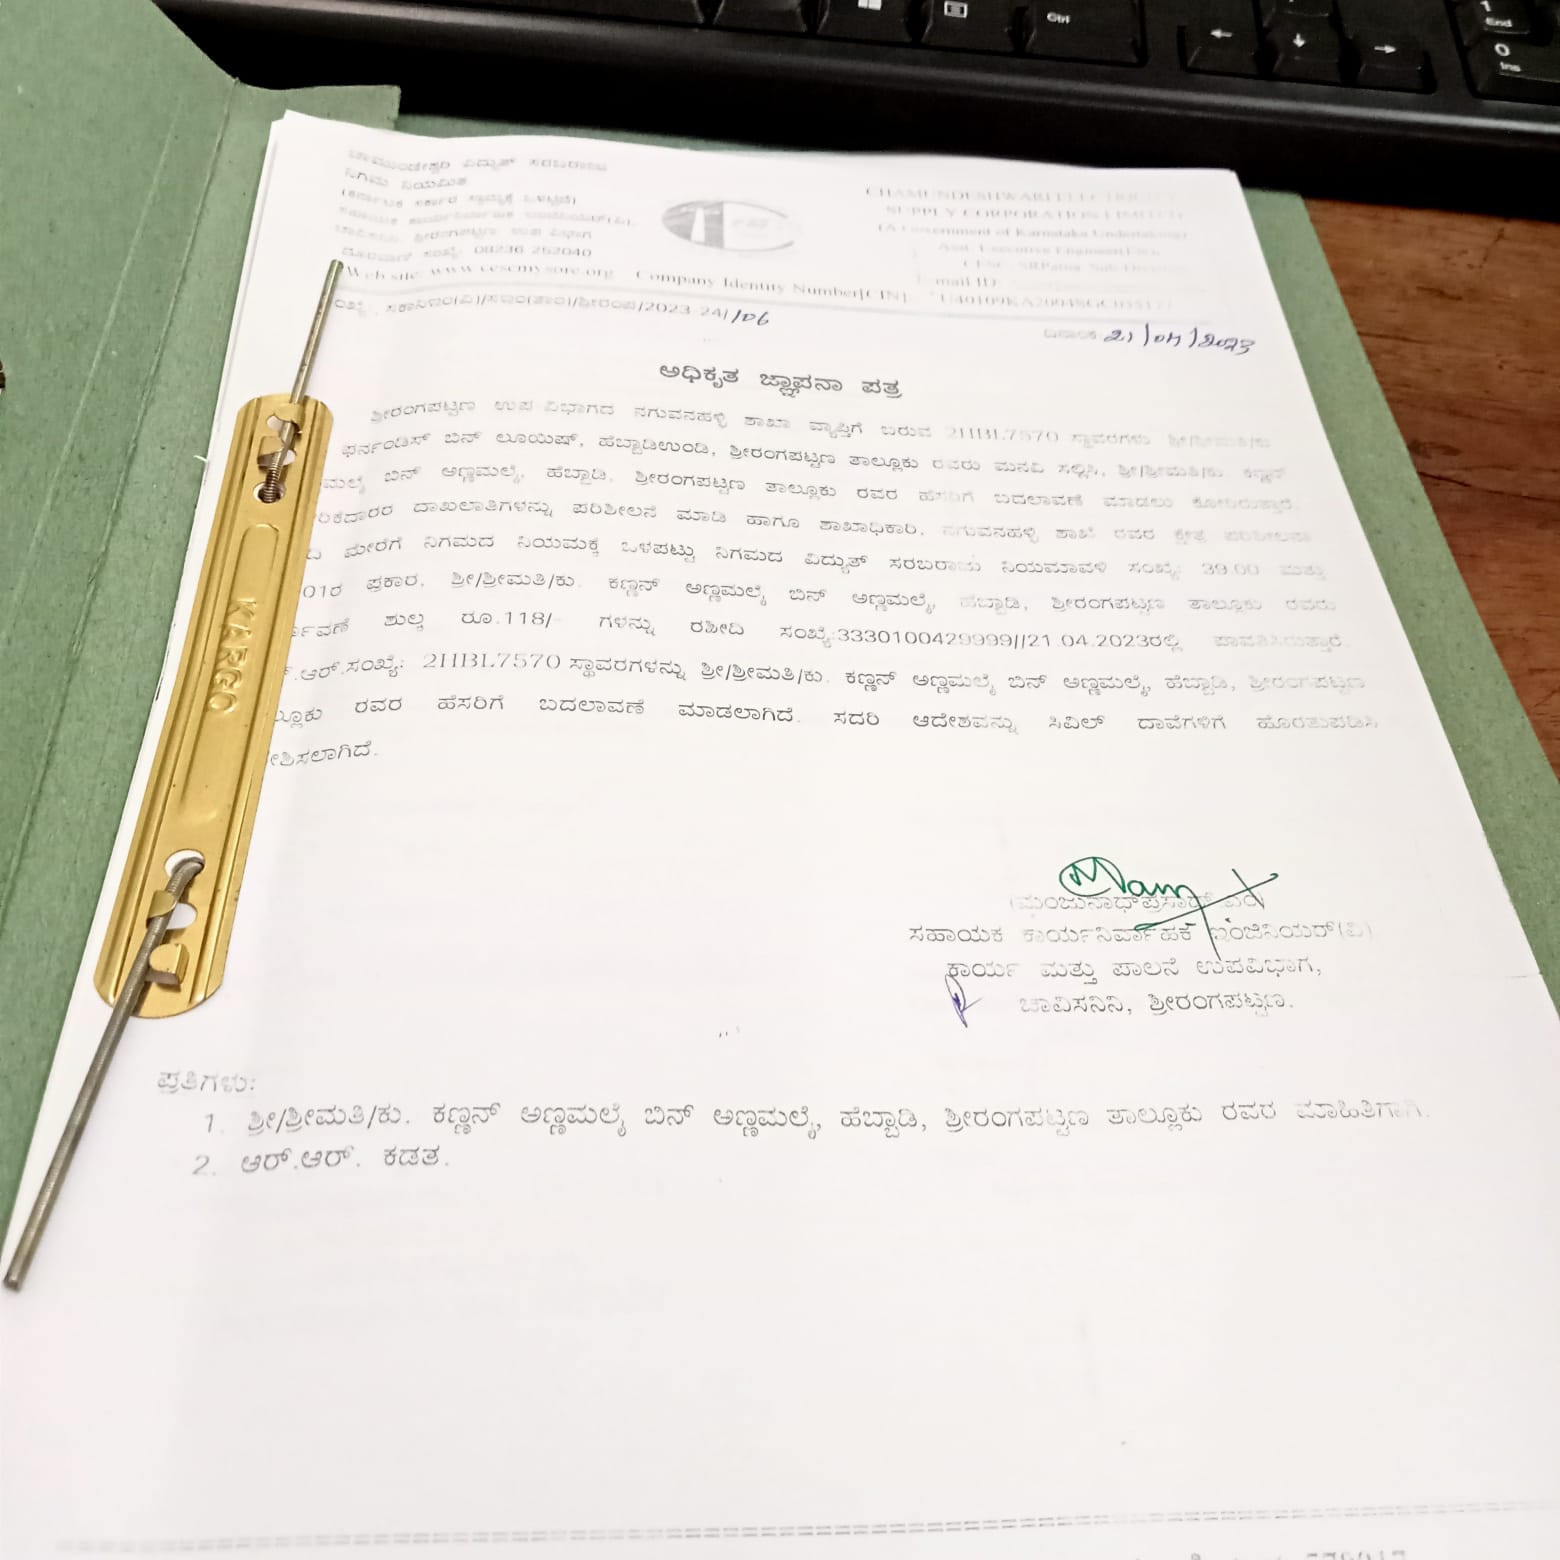 ಚಾಮುಂಡೇಶ್ವರಿ ವಿದ್ಯುತ್ ಸರಬರಾಜು
ನಿಗಮ ನಿಯಮಿತ
(ಕರ್ನಾಟಕ ಸರ್ಕಾರ ಸ್ವಾಮ್ಯಕ್ಕೆ ಒಳಪಟ್ಟಿದೆ)
ಸಹಾಯಕ ಕಾರ್ಯನಿರ್ವಾಹಕ ಇಂಜಿನಿಯರ್(ವಿ),
ಚಾವಿಸನಿನಿ, ಶ್ರೀರಂಗಪಟ್ಟಣ ಉಪ ವಿಭಾಗ
ದೂರವಾಣಿ ಸಂಖ್ಯೆ: 08236 252040
CHAMUNDESHWARI ELECTRICITY
SUPPLY CORPORATION LIMITED
(A Government of Karnataka Undertaking)
Asst. Executive Engineer(Ele),
CESC, SRPatna Sub Division
E-mail ID:
Web site: www.cescmysore.org Company Identity Number[CIN]: U40109KA2004SGC035177
ಸಂಖ್ಯೆ: ಸಕಾನಿಇಂ(ವಿ)/ಸಇಂ(ತಾಂ)/ಶ್ರೀರಂಪ/2023-24//106
ದಿನಾಂಕ: 21/04/2023
ಅಧಿಕೃತ ಜ್ಞಾಪನಾ ಪತ್ರ
ಶ್ರೀರಂಗಪಟ್ಟಣ ಉಪ ವಿಭಾಗದ ನಗುವನಹಳ್ಳಿ ಶಾಖಾ ವ್ಯಾಪ್ತಿಗೆ ಬರುವ 2HBL7570 ಸ್ಥಾವರಗಳು ಶ್ರೀ/ಶ್ರೀಮತಿ/ಕು.
ಫರ್ನಂಡಿಸ್ ಬಿನ್ ಲೂಯಿಷ್, ಹೆಬ್ಬಾಡಿಉಂಡಿ, ಶ್ರೀರಂಗಪಟ್ಟಣ ತಾಲ್ಲೂಕು ರವರು ಮನವಿ ಸಲ್ಲಿಸಿ, ಶ್ರೀ/ಶ್ರೀಮತಿ/ಕು. ಕಣ್ಣನ್
ಮಲೈ ಬಿನ್ ಅಣ್ಣಮಲೈ, ಹೆಬ್ಬಾಡಿ, ಶ್ರೀರಂಗಪಟ್ಟಣ ತಾಲ್ಲೂಕು ರವರ ಹೆಸರಿಗೆ ಬದಲಾವಣೆ ಮಾಡಲು ಕೋರಿರುತ್ತಾರೆ.
ರಿಕೆದಾರರ ದಾಖಲಾತಿಗಳನ್ನು ಪರಿಶೀಲನೆ ಮಾಡಿ ಹಾಗೂ ಶಾಖಾಧಿಕಾರಿ, ನಗುವನಹಳ್ಳಿ ಶಾಖೆ ರವರ ಕ್ಷೇತ್ರ ಪರಿಶೀಲನಾ
ದಿ ಮೇರೆಗೆ ನಿಗಮದ ನಿಯಮಕ್ಕೆ ಒಳಪಟ್ಟು ನಿಗಮದ ವಿದ್ಯುತ್ ಸರಬರಾಜು ನಿಯಮಾವಳಿ ಸಂಖ್ಯೆ: 39.00 ಮತ್ತು
01ರ ಪ್ರಕಾರ, ಶ್ರೀ/ಶ್ರೀಮತಿ/ಕು. ಕಣ್ಣನ್ ಅಣ್ಣಮಲೈ ಬಿನ್ ಅಣ್ಣಮಲೈ, ಹೆಬ್ಬಾಡಿ, ಶ್ರೀರಂಗಪಟ್ಟಣ ತಾಲ್ಲೂಕು ರವರು
ರ್ಾವಣೆ ಶುಲ್ಕ ರೂ.118/- ಗಳನ್ನು ರಶೀದಿ ಸಂಖ್ಯೆ:3330100429999//21.04.2023ರಲ್ಲಿ ಪಾವತಿಸಿರುತ್ತಾರೆ.
.ಆರ್.ಸಂಖ್ಯೆ: 2HBL7570 ಸ್ಥಾವರಗಳನ್ನು ಶ್ರೀ/ಶ್ರೀಮತಿ/ಕು. ಕಣ್ಣನ್ ಅಣ್ಣಮಲೈ ಬಿನ್ ಅಣ್ಣಮಲೈ, ಹೆಬ್ಬಾಡಿ, ಶ್ರೀರಂಗಪಟ್ಟಣ
ಲ್ಲೂಕು ರವರ ಹೆಸರಿಗೆ ಬದಲಾವಣೆ ಮಾಡಲಾಗಿದೆ. ಸದರಿ ಆದೇಶವನ್ನು ಸಿವಿಲ್ ದಾವೆಗಳಿಗೆ ಹೊರತುಪಡಿಸಿ
ೇಶಿಸಲಾಗಿದೆ.
(ಮಂಜುನಾಥ್‌ಪ್ರಸಾದ್
ಸಹಾಯಕ ಕಾರ್ಯನಿರ್ವಾಹಕ ಇಂಜಿನಿಯರ್(ವಿ)
ಕಾರ್ಯ ಮತ್ತು ಪಾಲನೆ ಉಪವಿಭಾಗ,
ಚಾವಿಸನಿನಿ, ಶ್ರೀರಂಗಪಟ್ಟಣ.
ಪ್ರತಿಗಳು:
1. ಶ್ರೀ/ಶ್ರೀಮತಿ/ಕು. ಕಣ್ಣನ್ ಅಣ್ಣಮಲೈ ಬಿನ್ ಅಣ್ಣಮಲೈ, ಹೆಬ್ಬಾಡಿ, ಶ್ರೀರಂಗಪಟ್ಟಣ ತಾಲ್ಲೂಕು ರವರ ಮಾಹಿತಿಗಾಗಿ.
2. ಆರ್.ಆರ್. ಕಡತ.
KERGO
Ctrl
1
End
0
Ins